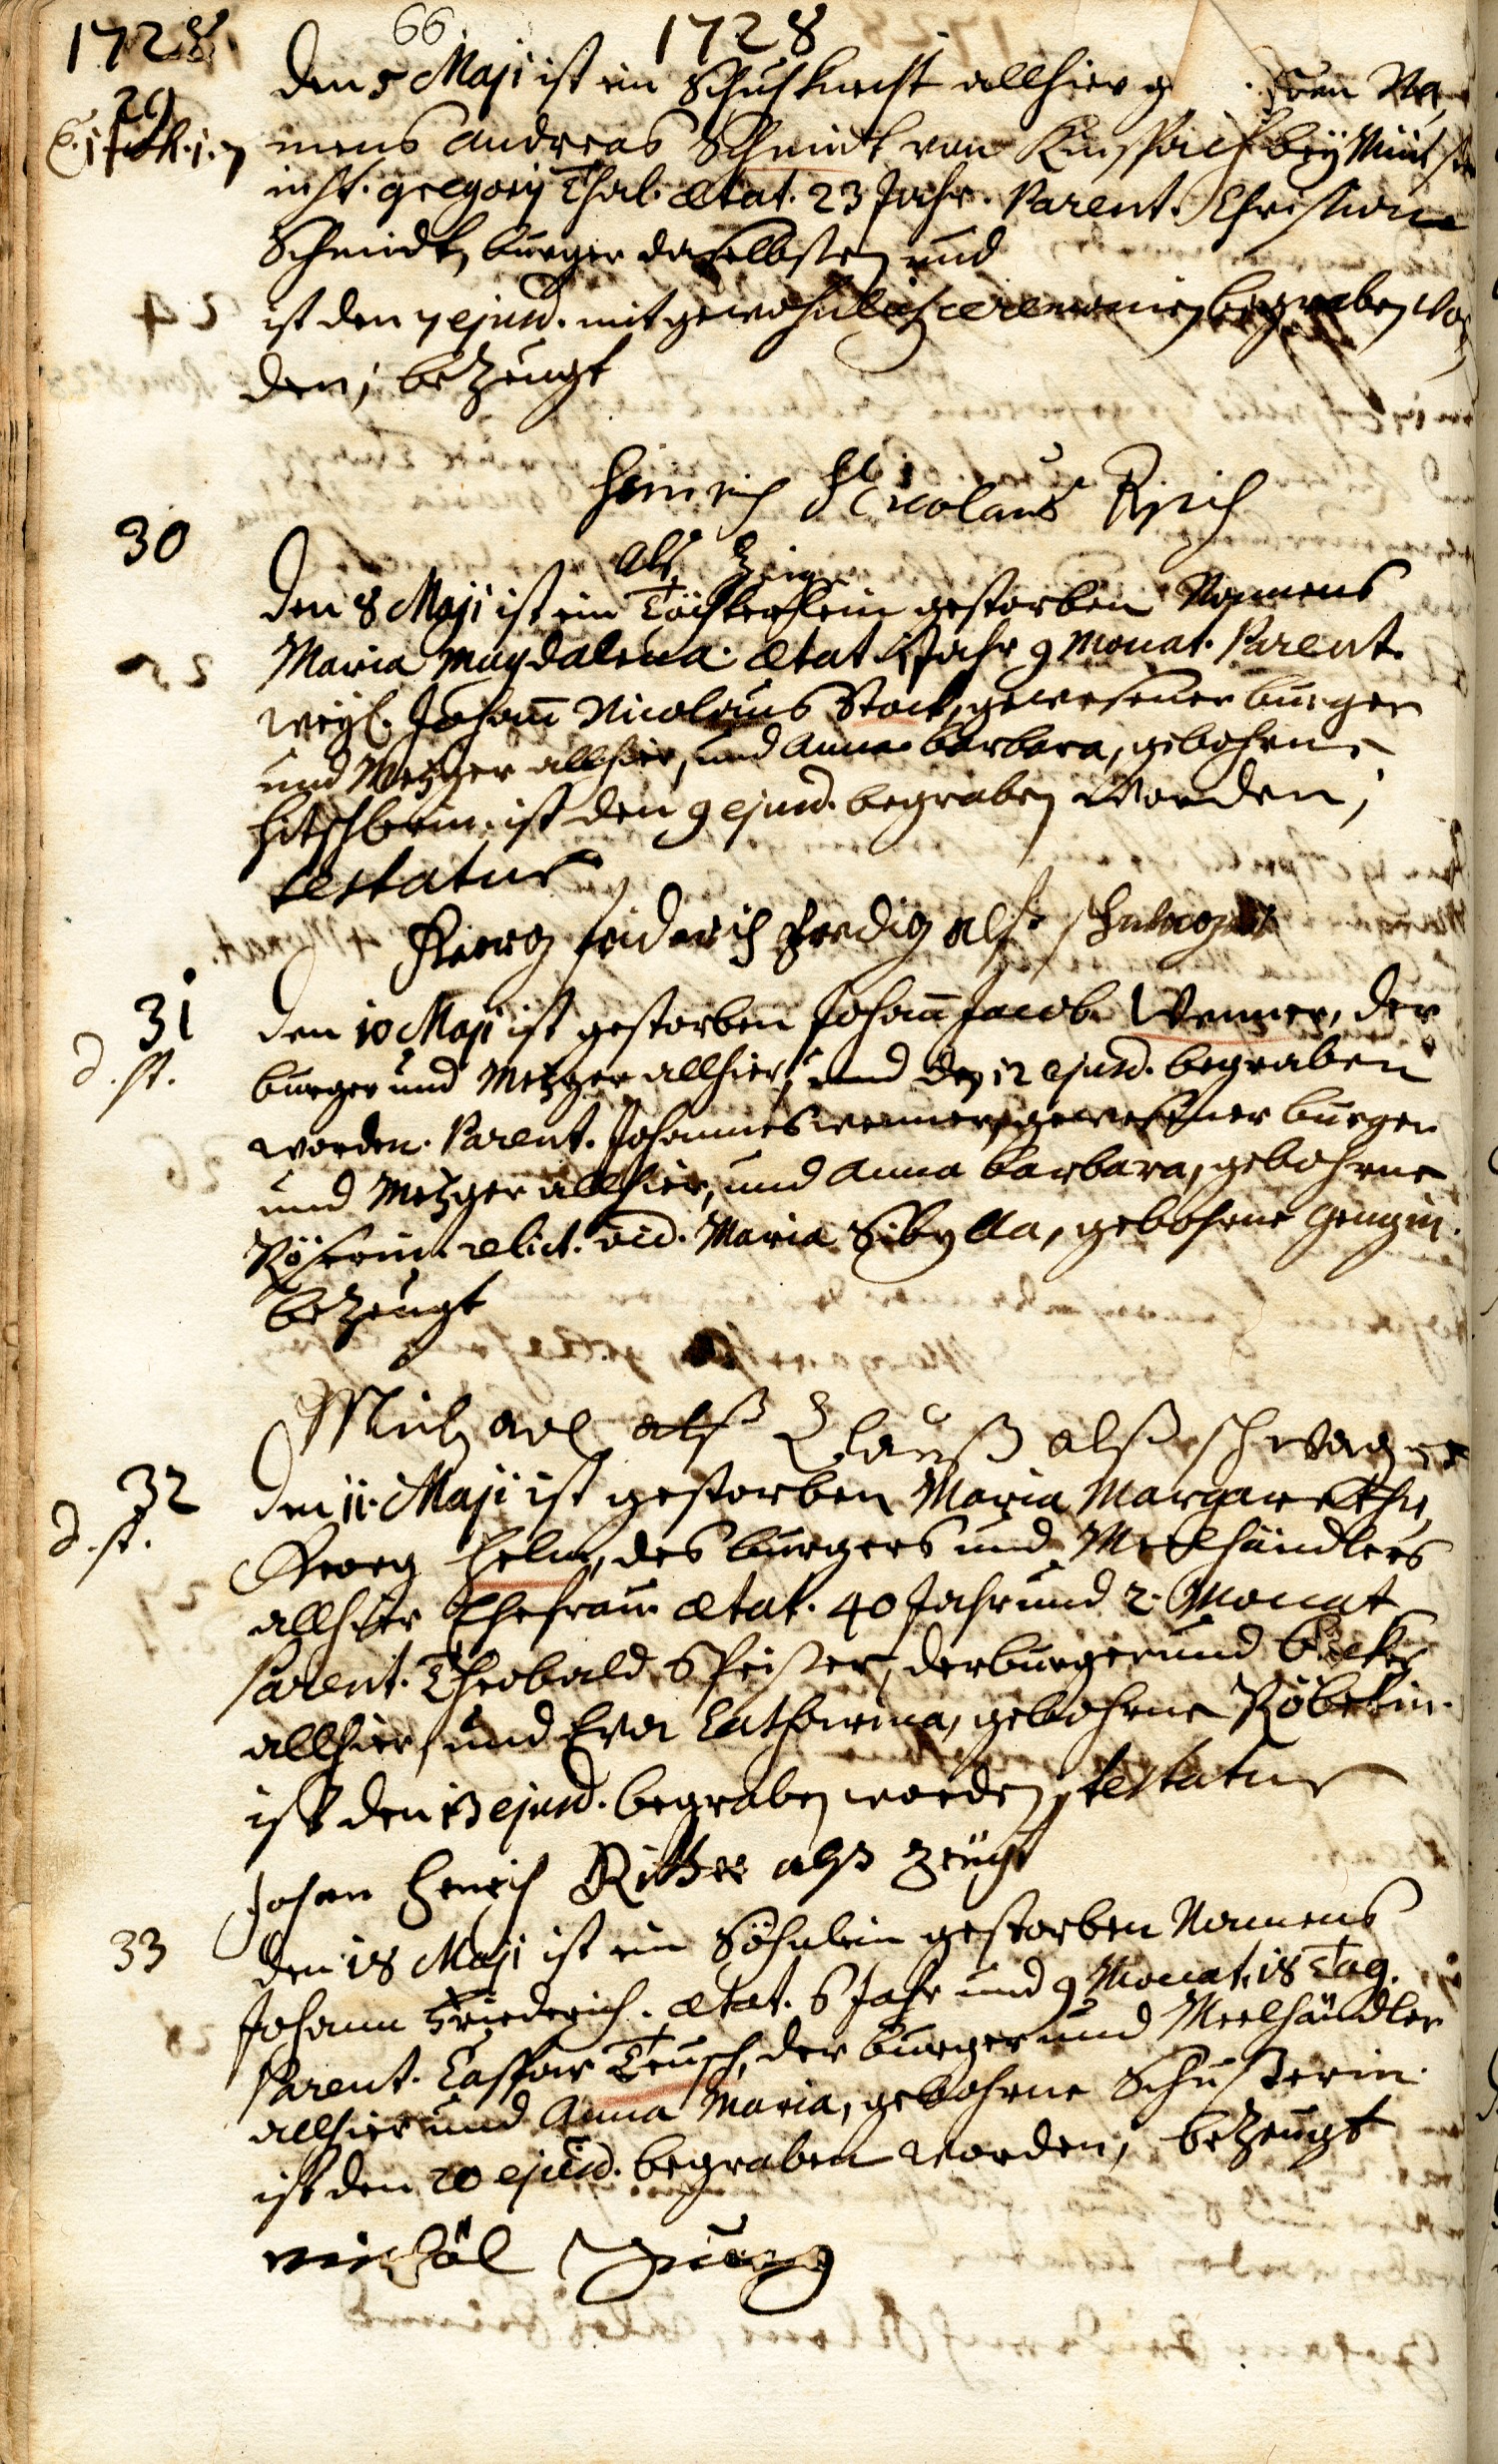 1728 66 1728
29
den 5 Maji ist ein Schuhknecht allhier Na-
mens Andreas Schmidt von bey Münster
in St. Gregorij Thal. ætat. 23 Jahr. Parent. Christian
Schmidt, burger daselbsten und
ist den 7 ejusd. mit gewohnlich ceremonien begraben wor
den; bezeugt
Heinrich Nicolaus
als Zeige
30
den 8 Maji ist ein Töchterlein gestorben Namens
Maria Magdalena. ætat Jahr 9 Monat. Parent.
weyl. Johann Nicolaus Stock, gewesener burger
und Metzger allhier, und Anna Barbara, gebohrne
ist den 9 ejusd. begraben worden;
testatur
friderich als schwager
31
d. st.
den 10 Maji ist gestorben Johann Jacob Wenner, der
burger und Metzger allhier, und den 12 ejusd. begraben
worden. Parent. Johannes Wenner, gewesener burger
und Metzger allhier, und Anna Barbara, gebohrne
Röserin. relict. vid. Maria Sibylla, gebohrne
bezeugt
Michael alß Clauß alß schwager
32
d. st.
den 11. Maji ist gestorben Maria Margaretha,
Georg Helm, des burgers und Meelhändlers
allhier Ehefrau. ætat. 40 Jahr und 2. Monat
Parent. Theobald der burger und becker
allhier, und Eva Catharina, gebohrne
ist den 13 ejusd. begraben worden, testatur
Johan Henrich Ritter alß zeüg
33
den 18 Maji ist ein Söhnlein gestorben Namens
Johann Friederich. ætat. 6 Jahr und 9 Monat, 18 Tag.
Parent. Caspar Teusch, der burger und Meelhändler
allhier und Anna Maria, gebohrne Schusterin
ist den 20 ejusd. begraben worden, bezeugt
michäl